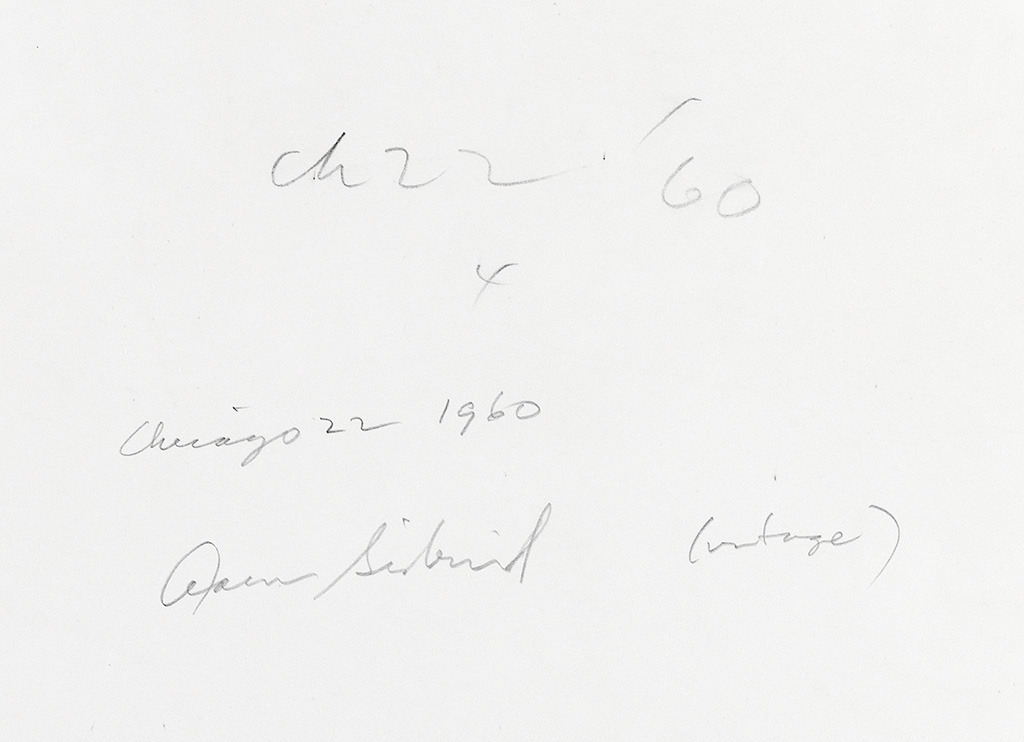 ch 22 '60
x
Chicago 22 1960
Aaron Siskind (vintage)